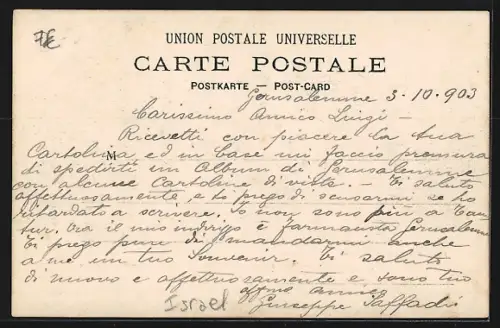 7€
UNION POSTALE UNIVERSELLE
CARTE POSTALE
POSTKARTE — POST-CARD
Gerusalemme 3-10-903
Carissimo Amico Luigi -
Ricevetti con piacere la tua
Cartolina ed in base mi faccio premura
M
di spedirti un Album di Gerusalemme
con alcune Cartoline di vista. - Ti saluto
affettuosamente, e te prego di scusarmi se ho
ritardato a scrivere. Io non sono più a Tan
tur. ora il mio indirizzo è farmacista Gerusalemme
Ti prego pure di mandarmi anche
a me un tuo Souvenir. Ti saluto
di nuovo e affettuosamente e sono tuo
affmo amico
Israel Giuseppe Saffadi